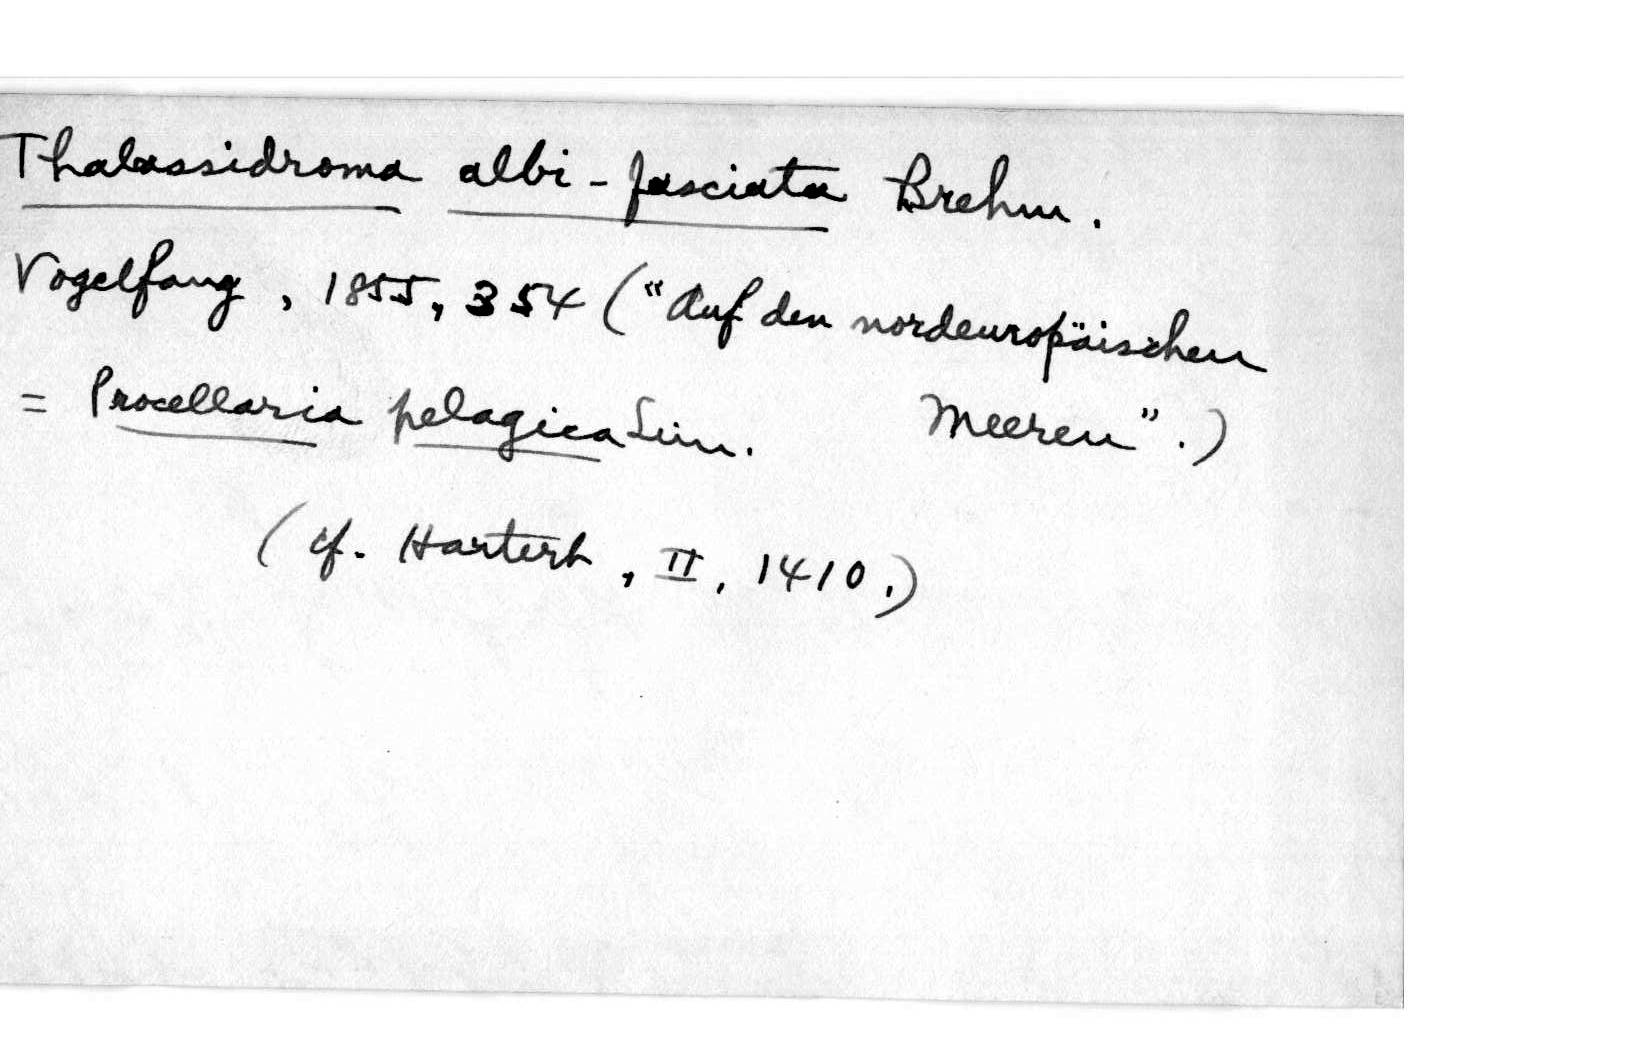 Thalassidroma albi-fasciata Brehm.
Vogelfang, 1855, 354 ("Auf den nordeuropäischen
= Procellaria pelagica Linn. Meeren".)
(cf. Hartert, II, 1410.)